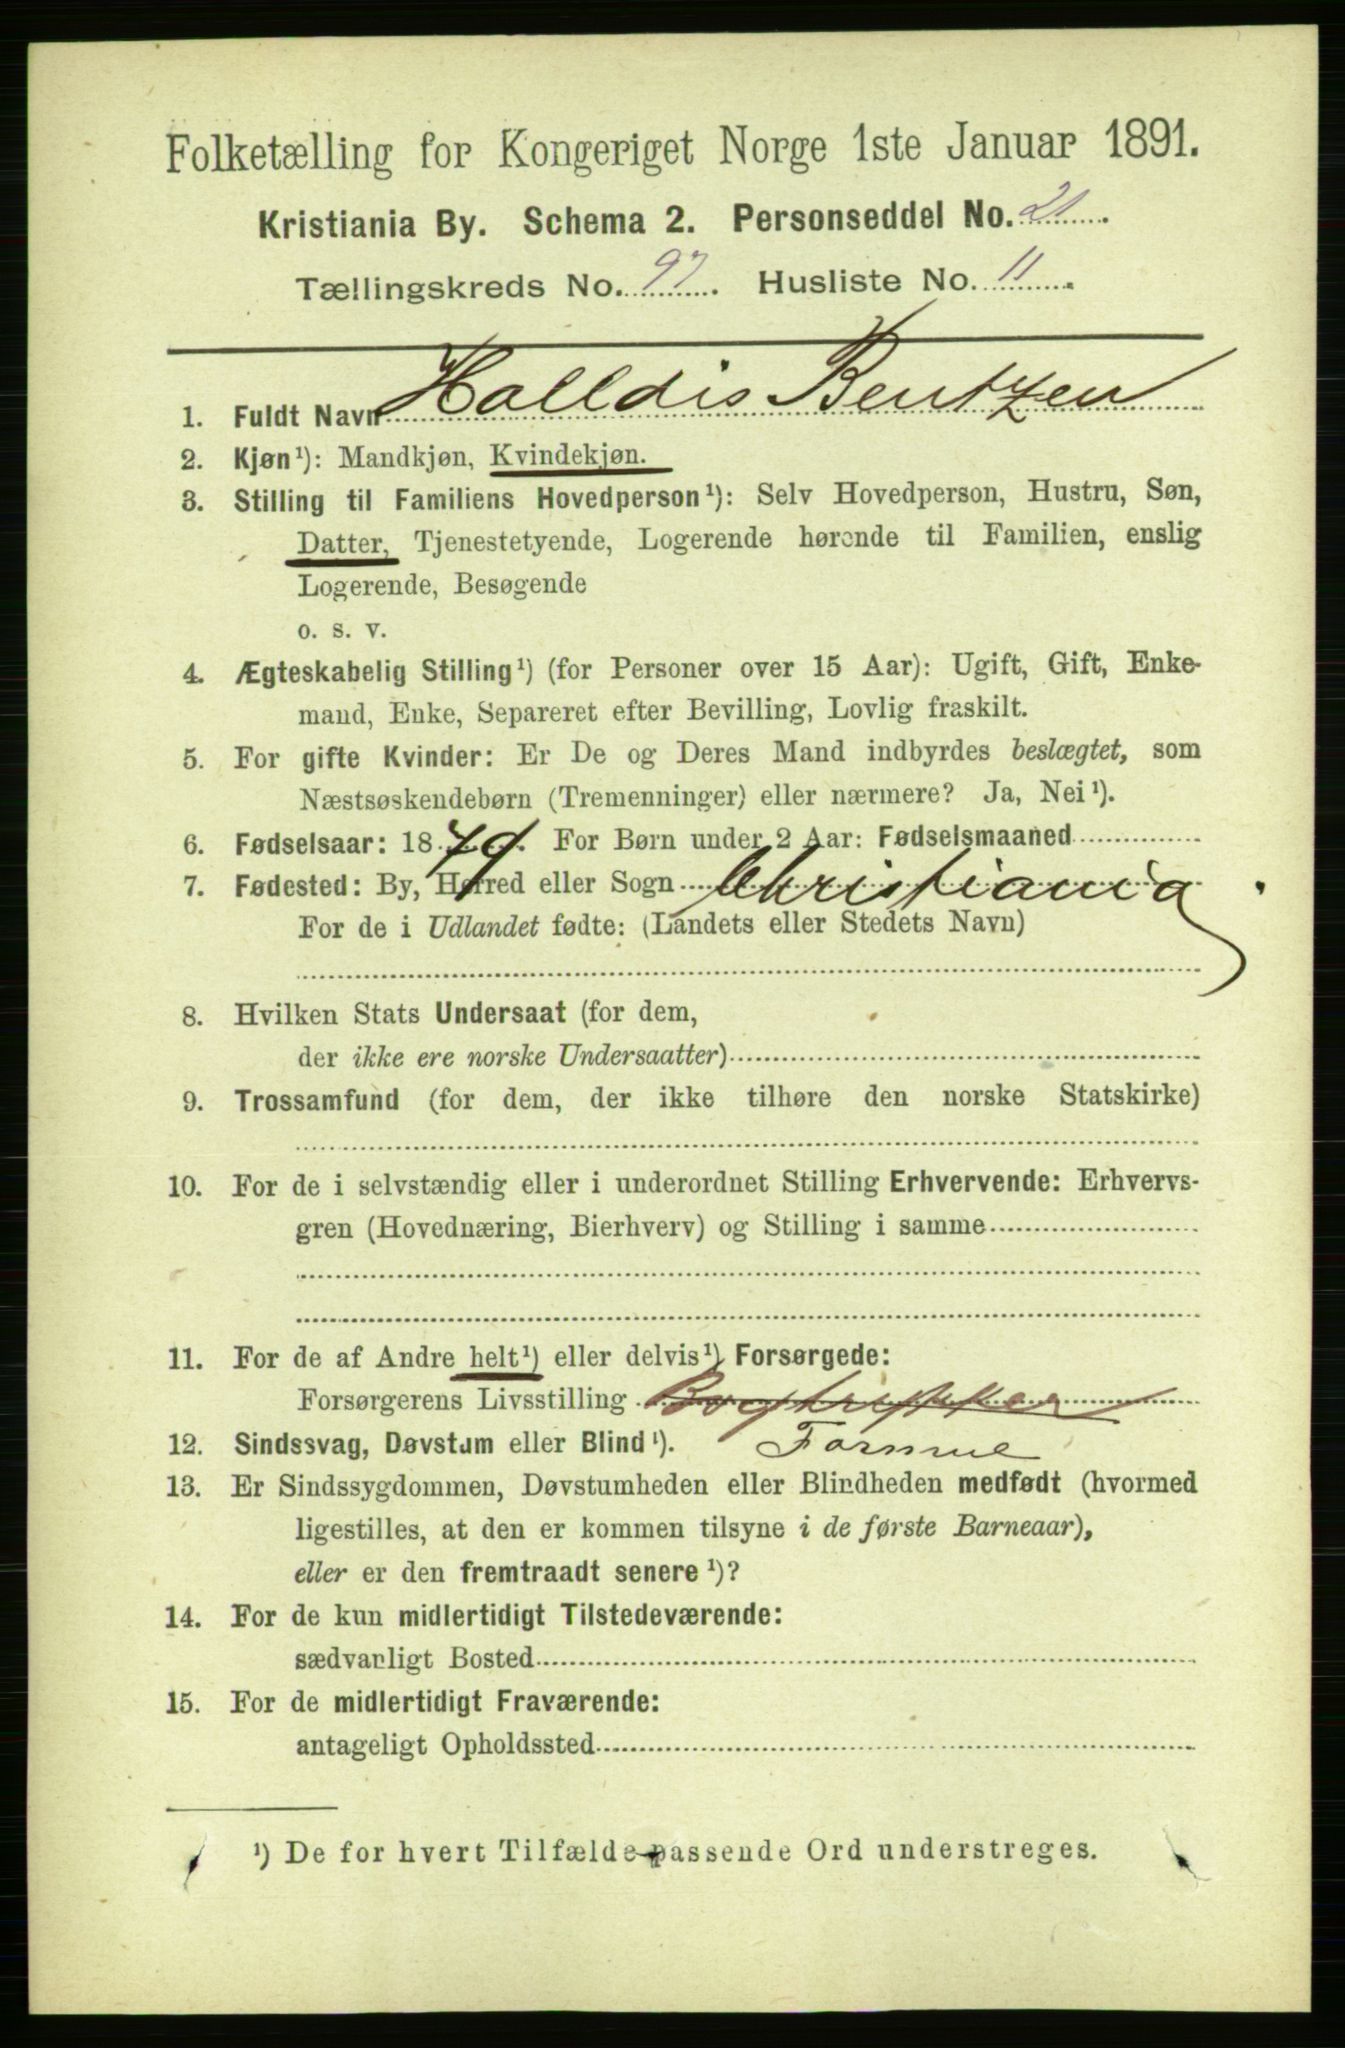 Folketælling for Kongeriget Norge 1ste Januar 1891.
Kristiania By. Schema 2. Personseddel No. 21.
Tællingskreds No. 97. Husliste No. 11.
1. Fuldt Navn Halldis Bentzen
2. Kjøn¹): Mandkjøn, Kvindekjøn.
3. Stilling til Familiens Hovedperson¹): Selv Hovedperson, Hustru, Søn,
Datter, Tjenestetyende, Logerende hørende til Familien, enslig
Logerende, Besøgende
o. s. v.
4. Ægteskabelig Stilling¹) (for Personer over 15 Aar): Ugift, Gift, Enke-
mand, Enke, Separeret efter Bevilling, Lovlig fraskilt.
5. For gifte Kvinder: Er De og Deres Mand indbyrdes beslægtet, som
Næstsøskendebørn (Tremenninger) eller nærmere? Ja, Nei¹).
6. Fødselsaar: 1879. For Børn under 2 Aar: Fødselsmaaned
7. Fødested: By, Herred eller Sogn Christiania.
For de i Udlandet fødte: (Landets eller Stedets Navn)
8. Hvilken Stats Undersaat (for dem,
der ikke ere norske Undersaatter)
9. Trossamfund (for dem, der ikke tilhøre den norske Statskirke)
10. For de i selvstændig eller i underordnet Stilling Erhvervende: Erhvervs-
gren (Hovednæring, Bierhverv) og Stilling i samme
11. For de af Andre helt¹) eller delvis¹) Forsørgede:
Forsørgerens Livsstilling Bogtrykker
12. Sindssvag, Døvstum eller Blind¹). Formue
13. Er Sindssygdommen, Døvstumheden eller Blindheden medfødt (hvormed
ligestilles, at den er kommen tilsyne i de første Barneaar),
eller er den fremtraadt senere¹)?
14. For de kun midlertidigt Tilstedeværende:
sædvanligt Bosted
15. For de midlertidigt Fraværende:
antageligt Opholdssted
¹) De for hvert Tilfælde passende Ord understreges.